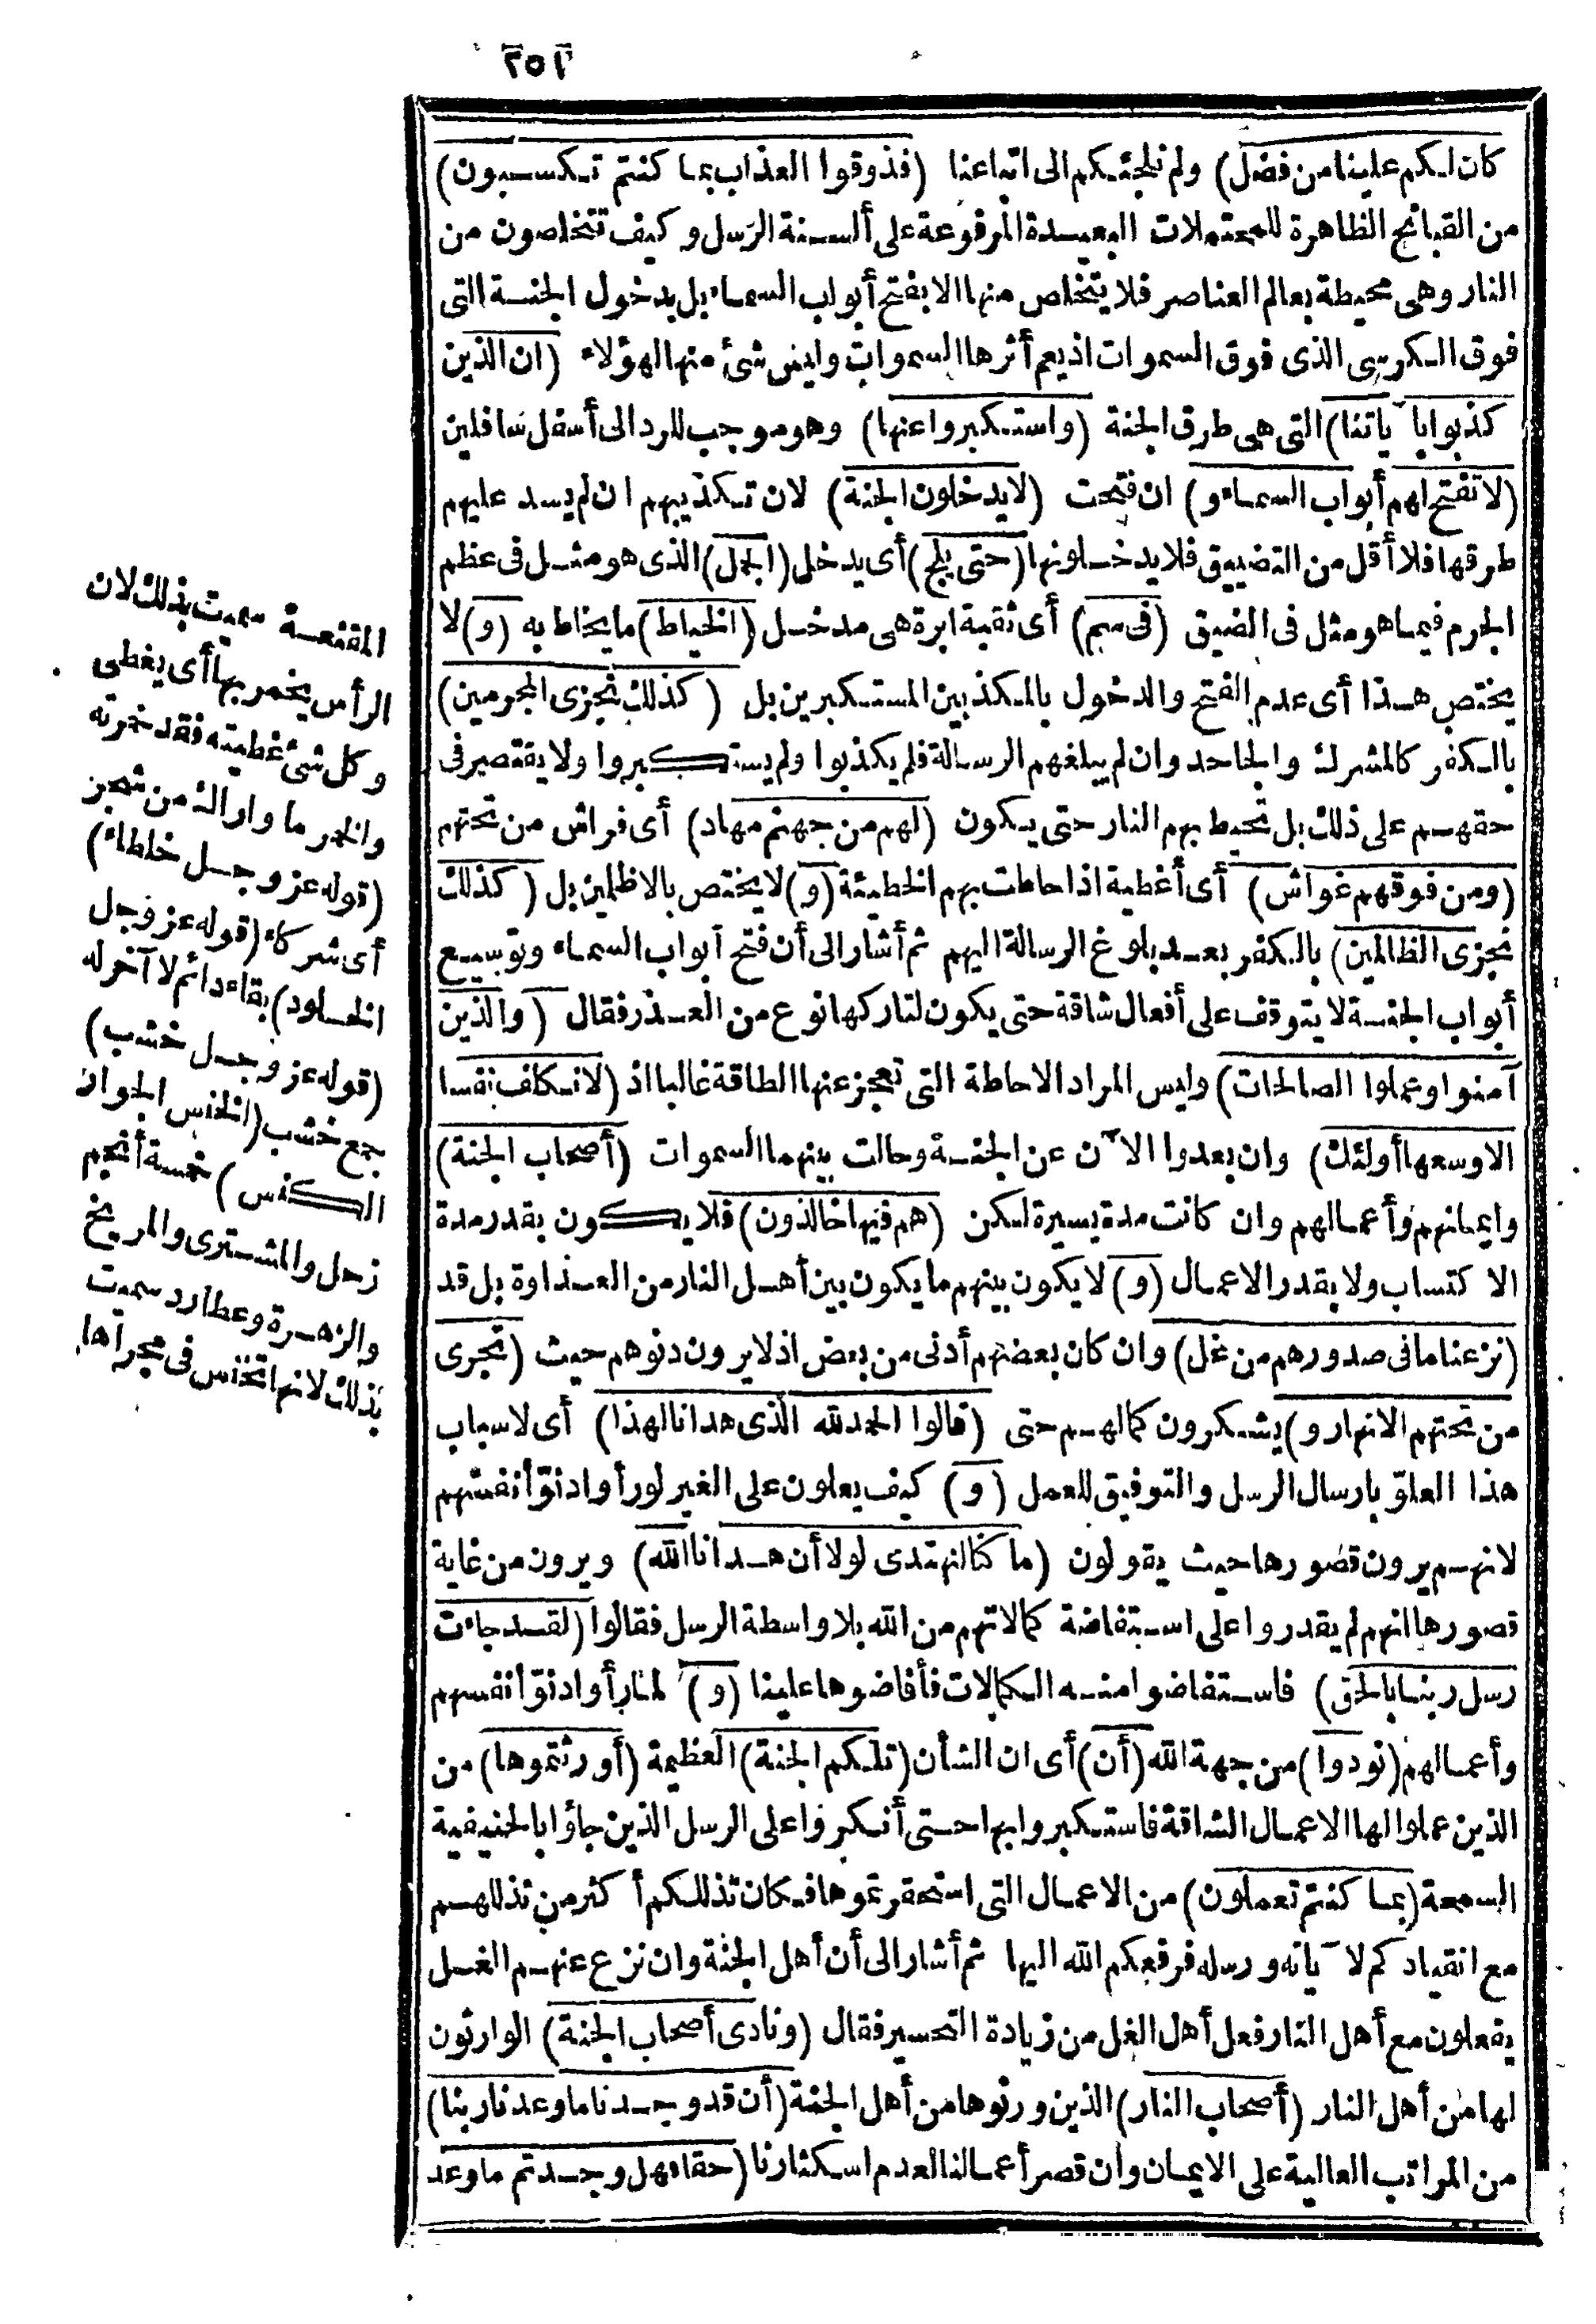 ٢٥١
كان لكم علينا من فضل) ولم نلجئكم الى اتباعنا (فذوقوا العذاب بما كنتم تكسبون)
من القبائح الظاهرة للمحتملات البعيدة المرفوعة على ألسنة الرسل وكيف تتخلصون من
النار وهى محيطة بعالم العناصر فلا يتخلص منها الا بفتح أبواب السماء بل بدخول الجنة التى
فوق الكرسى الذى فوق السموات اذ يعم أثرها السموات وليس شئ منها لهؤلاء (ان الذين
كذبوا بآياتنا) التى هى طرق الجنة (واستكبروا عنها) وهو موجب للرد الى أسفل سافلين
(لا تفتح لهم أبواب السماء و) ان فتحت (لا يدخلون الجنة) لان تكذيبهم ان لم يسد عليهم
طرقها فلا أقل من التضييق فلا يدخلونها (حتى يلج) أى يدخل (الجمل) الذى هو مثل فى عظم
الجرم فيما هو مثل فى الضيق (فى سم) أى ثقبة ابرة هى مدخل (الخياط) ما يخاط به (و) لا
يختص هذا أى عدم الفتح والدخول بالمكذبين المستكبرين بل (كذلك نجزى المجرمين)
بالكفر كالمشرك والجاحد وان لم يبلغهم الرسالة فلم يكذبوا ولم يستكبروا ولا يقتصر فى
حقهم على ذلك بل تحيط بهم النار حتى يكون (لهم من جهنم مهاد) أى فراش من تحتهم
(ومن فوقهم غواش) أى أغطية اذا حاطت بهم الخطيئة (و) لا يختص بالاظلمين بل (كذلك
نجزى الظالمين) بالكفر بعد بلوغ الرسالة اليهم ثم أشار الى أن فتح أبواب السماء وتوسيع
أبواب الجنة لا يتوقف على أفعال شاقة حتى يكون لتاركها نوع من العذر فقال (والذين
آمنوا وعملوا الصالحات) وليس المراد الاحاطة التى تعجز عنها الطاقة غالبا اذ (لا نكلف نفسا
الا وسعها أولئك) وان بعدوا الآن عن الجنة وحالت بينهما السموات (أصحاب الجنة)
وايمانهم وأعمالهم وان كانت مدة يسيرة لكن (هم فيها خالدون) فلا يكون بقدر مدة
الاكتساب ولا بقدر الاعمال (و) لا يكون بينهم ما يكون بين أهل النار من العداوة بل قد
(نزعنا ما فى صدورهم من غل) وان كان بعضهم أدنى من بعض اذ لا يرون دنوهم حيث (تجرى
من تحتهم الانهار و) يشكرون كمالهم حتى (قالوا الحمد لله الذى هدانا لهذا) أى لاسباب
هذا العلو بارسال الرسل والتوفيق للعمل (و) كيف يعلون على الغير لو رأوا دنو أنفسهم
لانهم يرون قصورها حيث يقولون (ما كنا لنهتدى لولا أن هدانا الله) ويرون من غاية
قصورها انهم لم يقدروا على استفاضة كمالاتهم من الله بلا واسطة الرسل فقالوا (لقد جاءت
رسل ربنا بالحق) فاستفاضوا منه الكمالات فأفاضوها علينا (و) لما رأوا دنو أنفسهم
وأعمالهم (نودوا) من جهة الله (أن) أى ان الشأن (تلكم الجنة) العظيمة (أورثتموها) من
الذين عملوا لها الاعمال الشاقة فاستكبروا بها حتى أنكروا على الرسل الذين جاؤا بالحنيفية
السمحة (بما كنتم تعملون) من الاعمال التى استحقرتموها فكان تذللكم أكثر من تذللهم
مع انقيادكم لآياته ورسله فرفعكم الله اليها ثم أشار الى أن أهل الجنة وان نزع عنهم الغل
يفعلون مع أهل النار فعل أهل الغل من زيادة التحسير فقال (ونادى أصحاب الجنة) الوارثون
لها من أهل النار (أصحاب النار) الذين ورثوها من أهل الجنة (أن قد وجدنا ما وعدنا ربنا)
من المراتب العالية على الايمان وان قصر أعمالنا لعدم استكثارنا (حقا فهل وجدتم ما وعد
المقنعة سميت بذلك لان
الرأس يخمر بها أى يغطى
وكل شئ غطيته فقد خمرته
والخمر ما واراك من شجر
(قوله عز وجل خلطاء)
أى شركاء (قوله عز وجل
الخلود) بقاء دائم لا آخر له
(قوله عز وجل خشب)
جمع خشب (الخنس الجوار
الكنس) خمسة أنجم
زحل والمشترى والمريخ
والزهرة وعطارد سميت
بذلك لانها تخنس فى مجراها